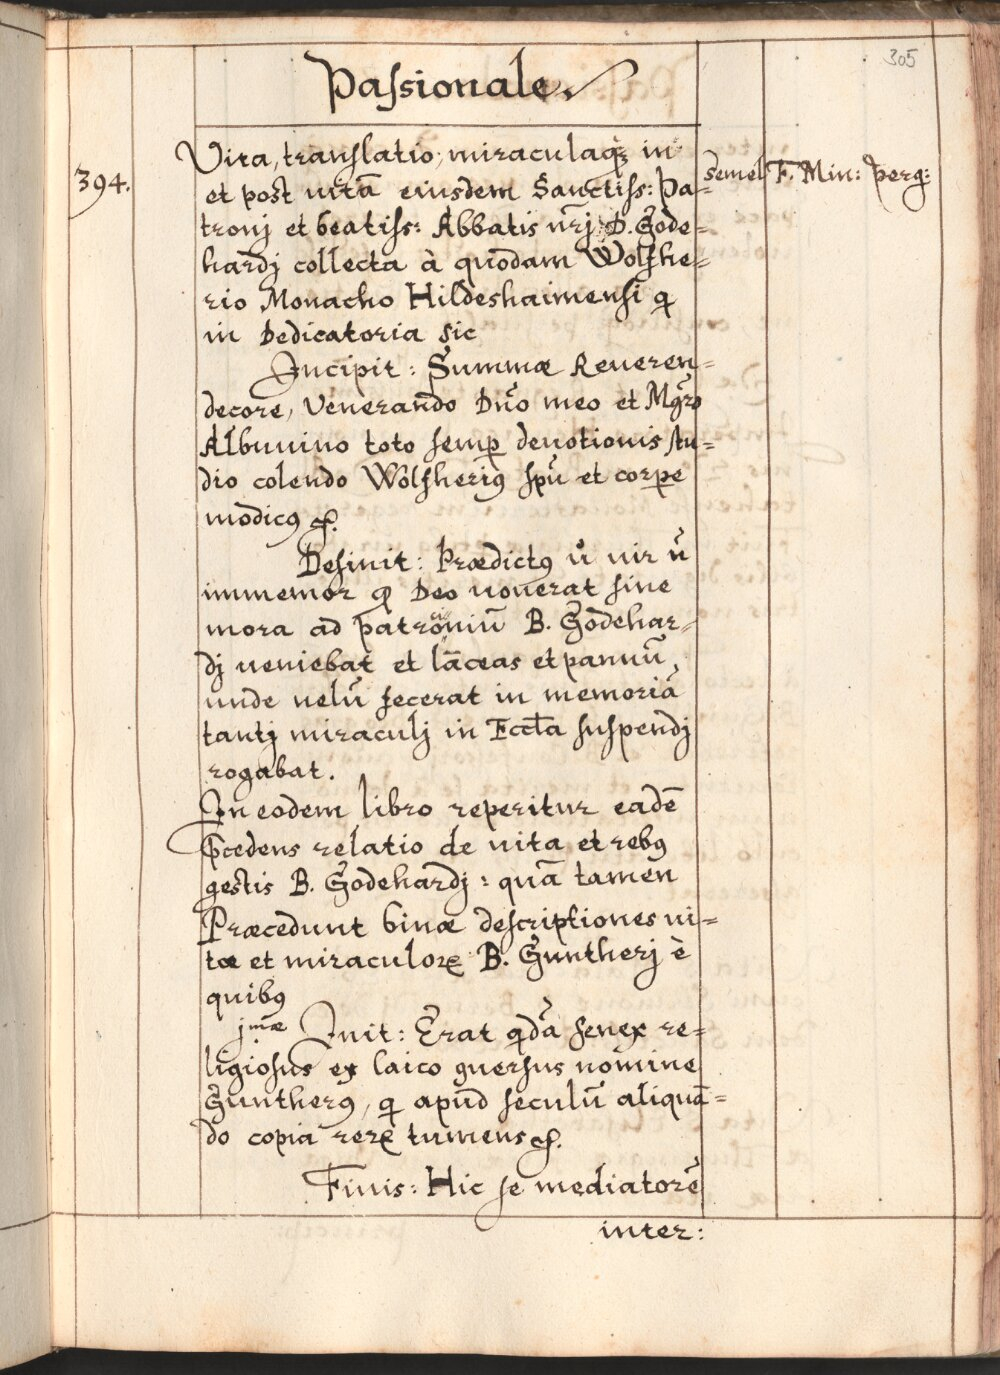 305
Passionale.
394.
Vita, translatio, miraculaq; in
et post uitã eiusdem Sanctiss: Pa=
tronj et beatiss: Abbatis nr̃j D. Gode=
hardj collecta à quodam Wolfhe=
rio Monacho Hildeshaimensi q
in Dedicatoria sic
semel
F. Min: perg:
Incipit: Summæ Reueren=
decore, Venerando Dño meo et Mgr̃o
Albuuino toto semp deuotionis stu=
dio colendo Wolfherig spũ et corpe
modicg
Definit: Prædictg ũ uir ũ
immemor q Deo uouerat sine
mora ad patrociniũ B. Godehar=
dj ueniebat et lãceas et pannũ,
unde uelũ fecerat in memoriã
tantj miraculj in Eccl̃a suspendj
rogabat.
In eodem libro reperitur eadẽ
p̃cedens relatio de uita et rebg
gestis B. Godehardj: quã tamen
Præcedunt binæ descriptiones ui=
tæ et miraculorꝝ B. Guntherj è
quibg
jmæ Init: Erat qdã senex re=
ligiosus ex laico ꝯuersus nomine
Guntherg, q apud seculũ aliquã=
do copia rerꝝ tumens
Finis: Hic se mediatorẽ
inter: